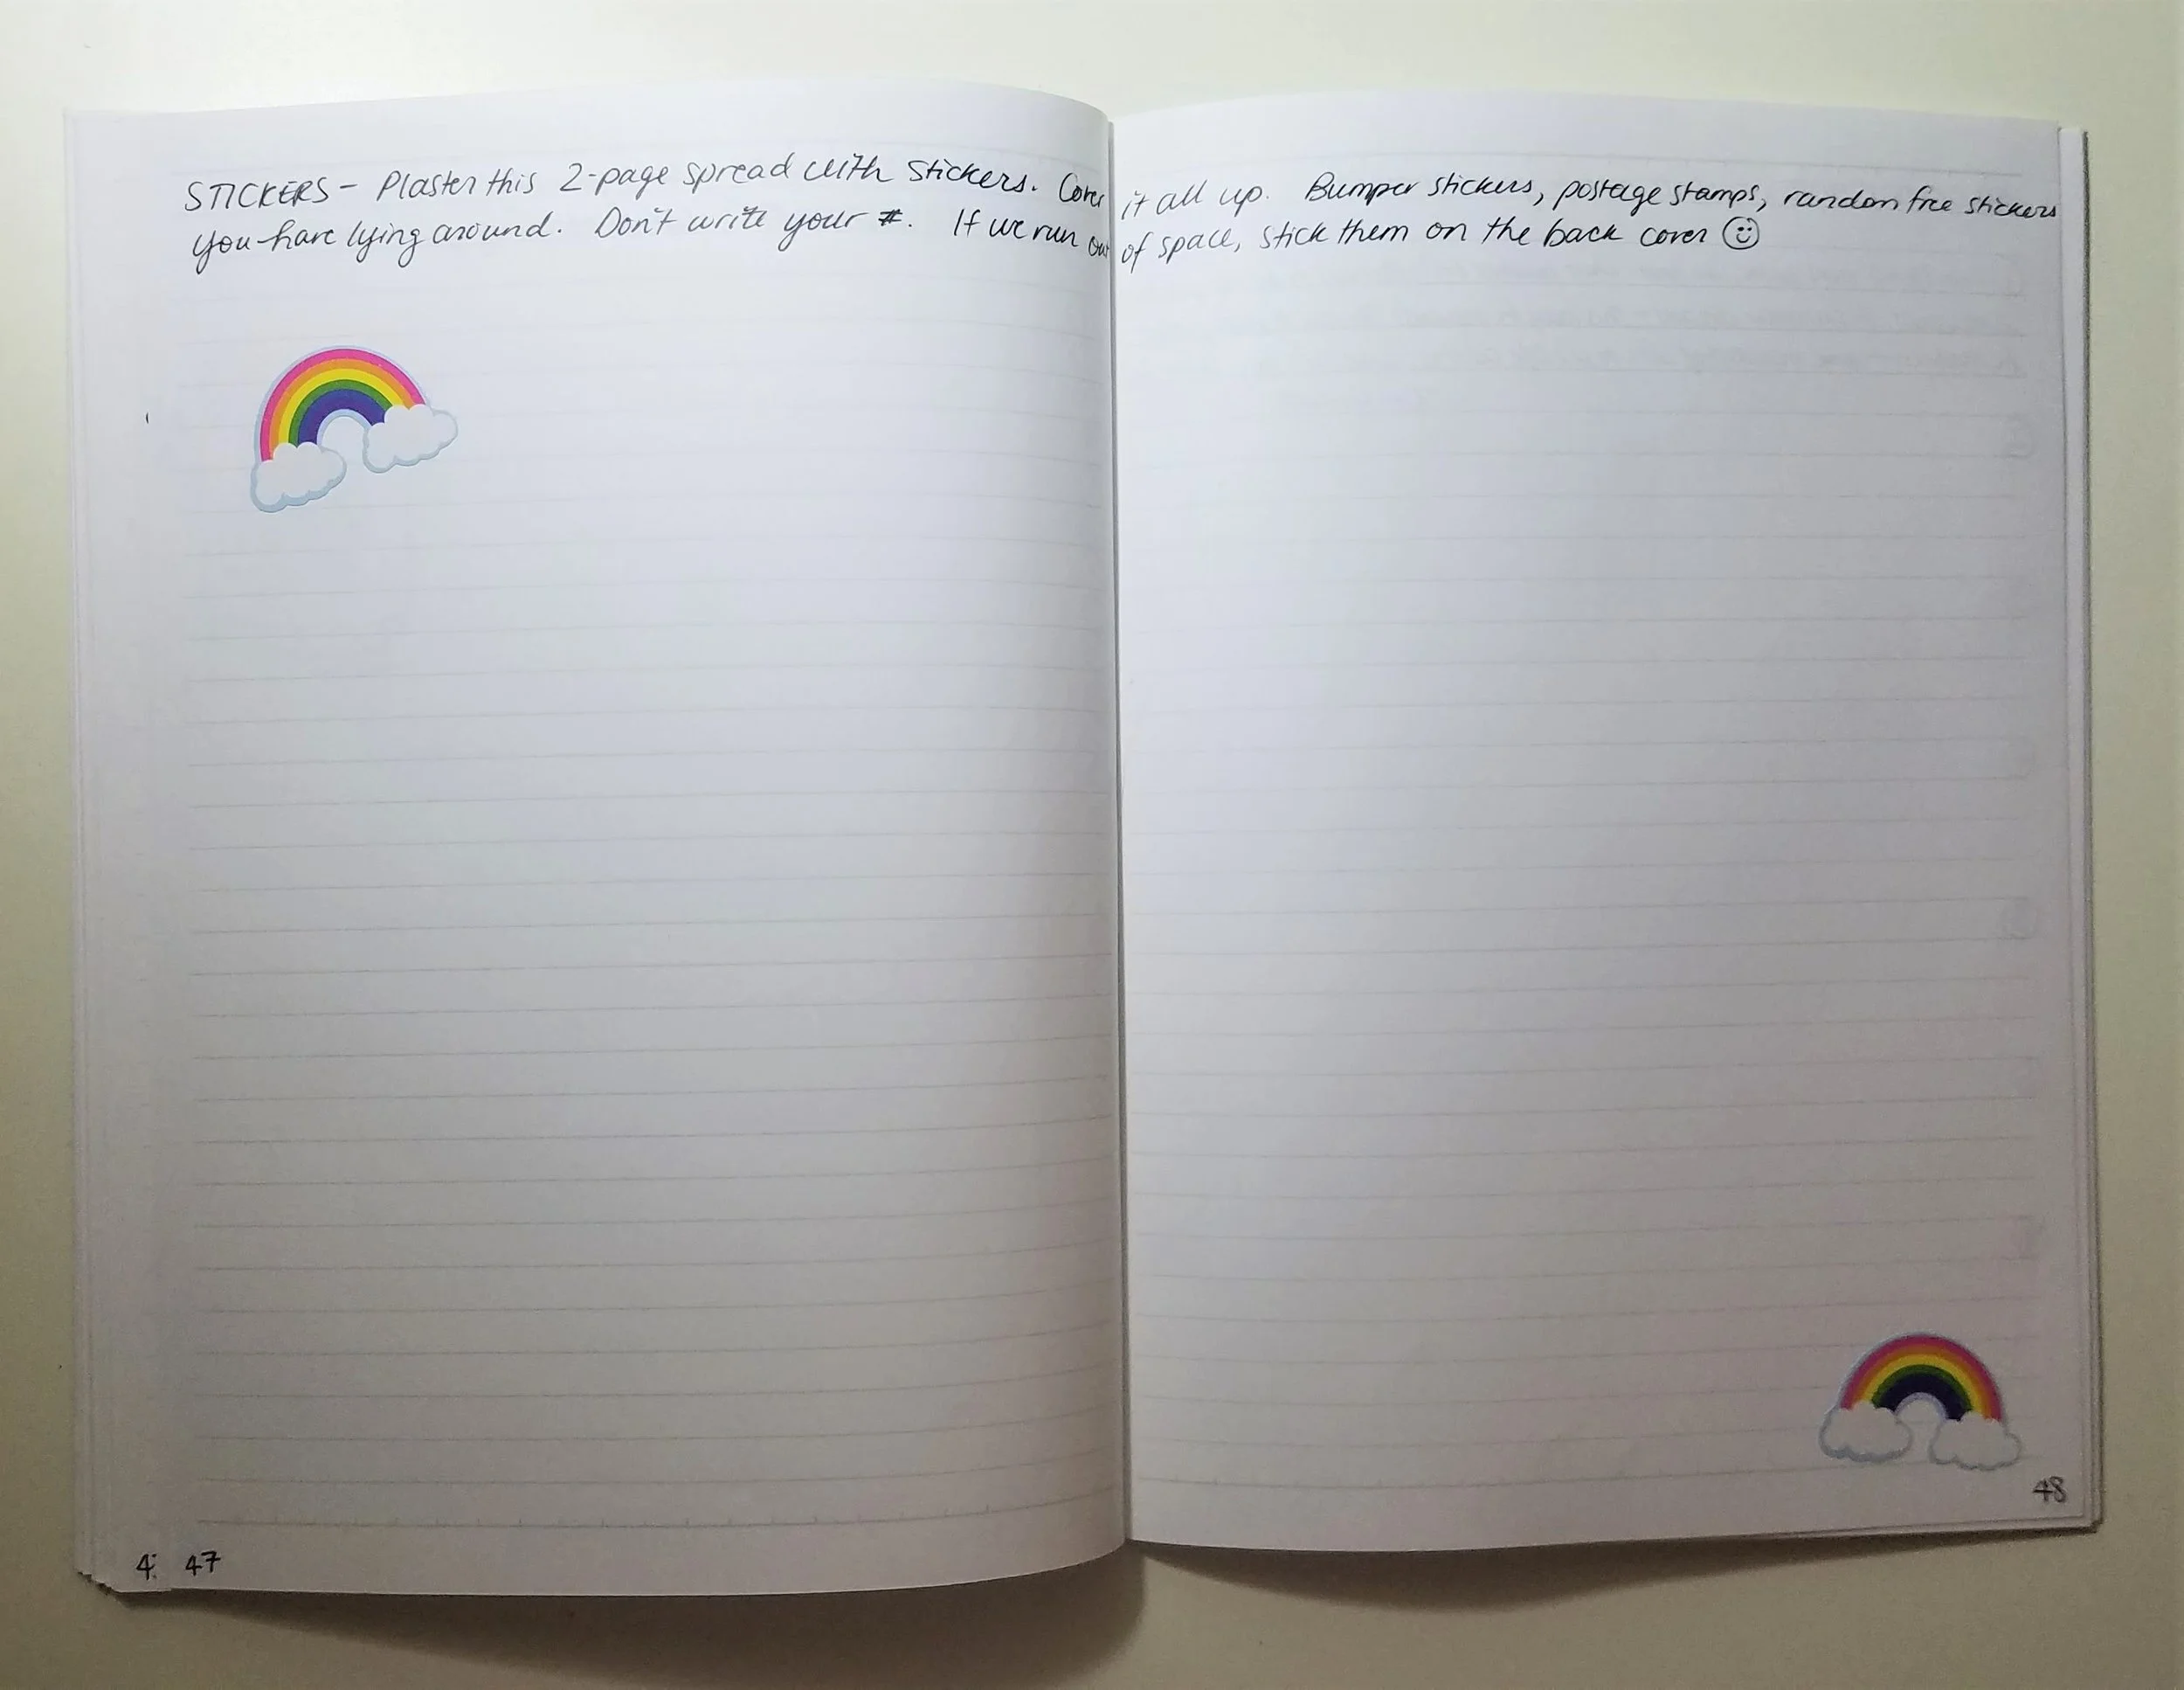 STICKERS - Plaster this 2-page spread with stickers. Cover it all up. Bumper stickers, postage stamps, random free stickers
you have lying around. Don't write your #. If we run out of space, stick them on the back cover ☺
48
4 47